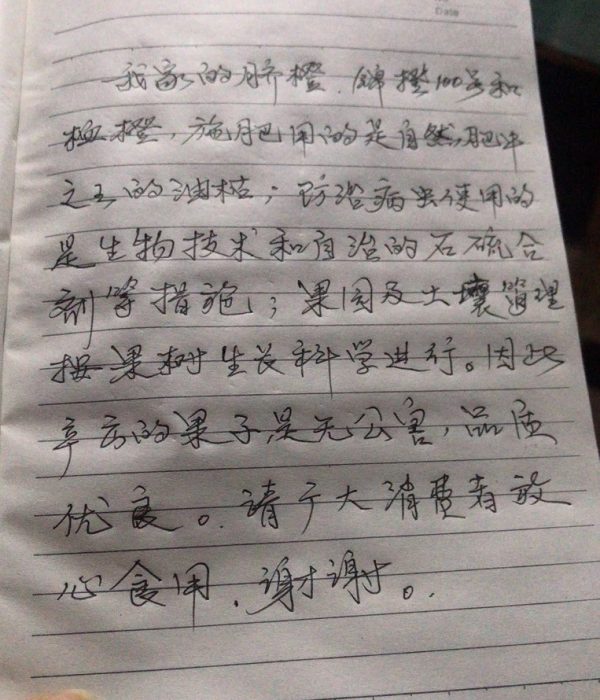 Date
我家的脐橙、锦橙100号和
极橙，施肥用的是自然肥中
之王的油枯；防治病虫使用的
是生物技术和自治的石硫合
剂等措施；果园及土壤管理
按果树生长科学进行。因此
产的果子是无公害，品质
优良。请广大消费者放
心食用、谢谢。